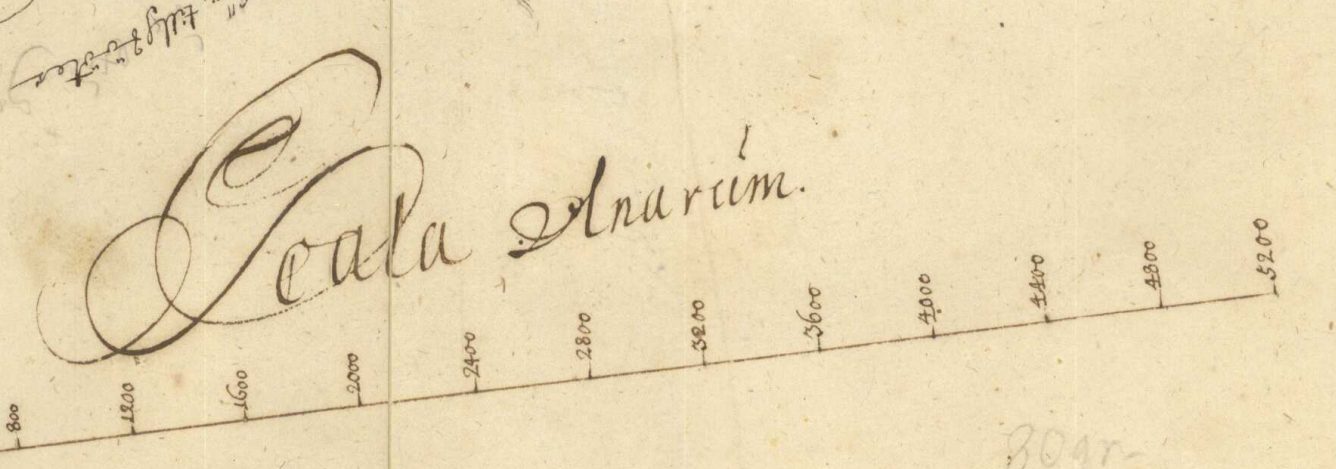 Scala Vlnarúm.
800 1200 1600 2000 2400 2800 3200 3600 4000 4400 4800 5200